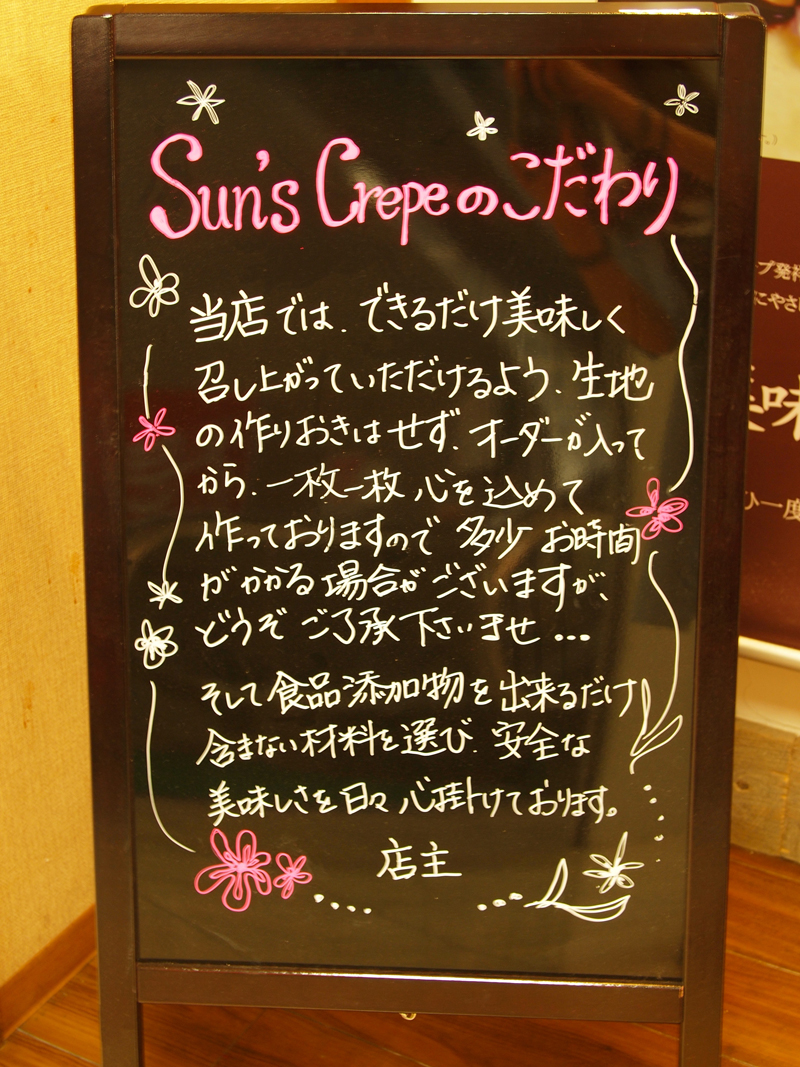 Sun's Crepeのこだわり
当店では、できるだけ美味しく
召し上がっていただけるよう、生地
の作りおきはせず、オーダーが入って
から、一枚一枚 心を込めて
作っておりますので 多少 お時間
がかかる場合がございますが、
どうぞ ご了承下さいませ…
そして食品添加物を出来るだけ
含まない材料を選び、安全な
美味しさを日々 心掛けております。
店主
ひ一度